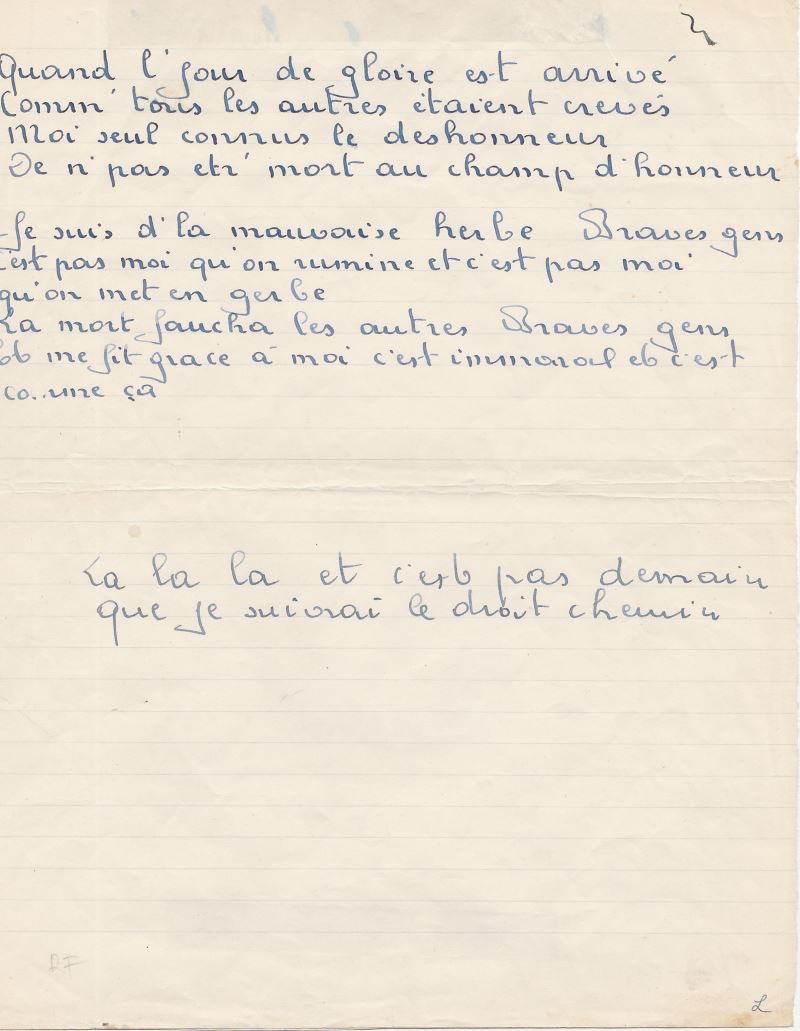 Quand l'jour de gloire est arrivé
Comm' tous les autres étaient crevés
Moi seul connus le deshonneur
De n'pas etr' mort au champ d'honneur
Je suis d'la mauvaise herbe Braves gens
c'est pas moi qu'on rumine et c'est pas moi
qu'on met en gerbe
La mort faucha les autres Braves gens
et me fit grace à moi c'est immoral et c'est
co..me ça
La la la et c'est pas demain
que je suivrai le droit chemin
RF
L